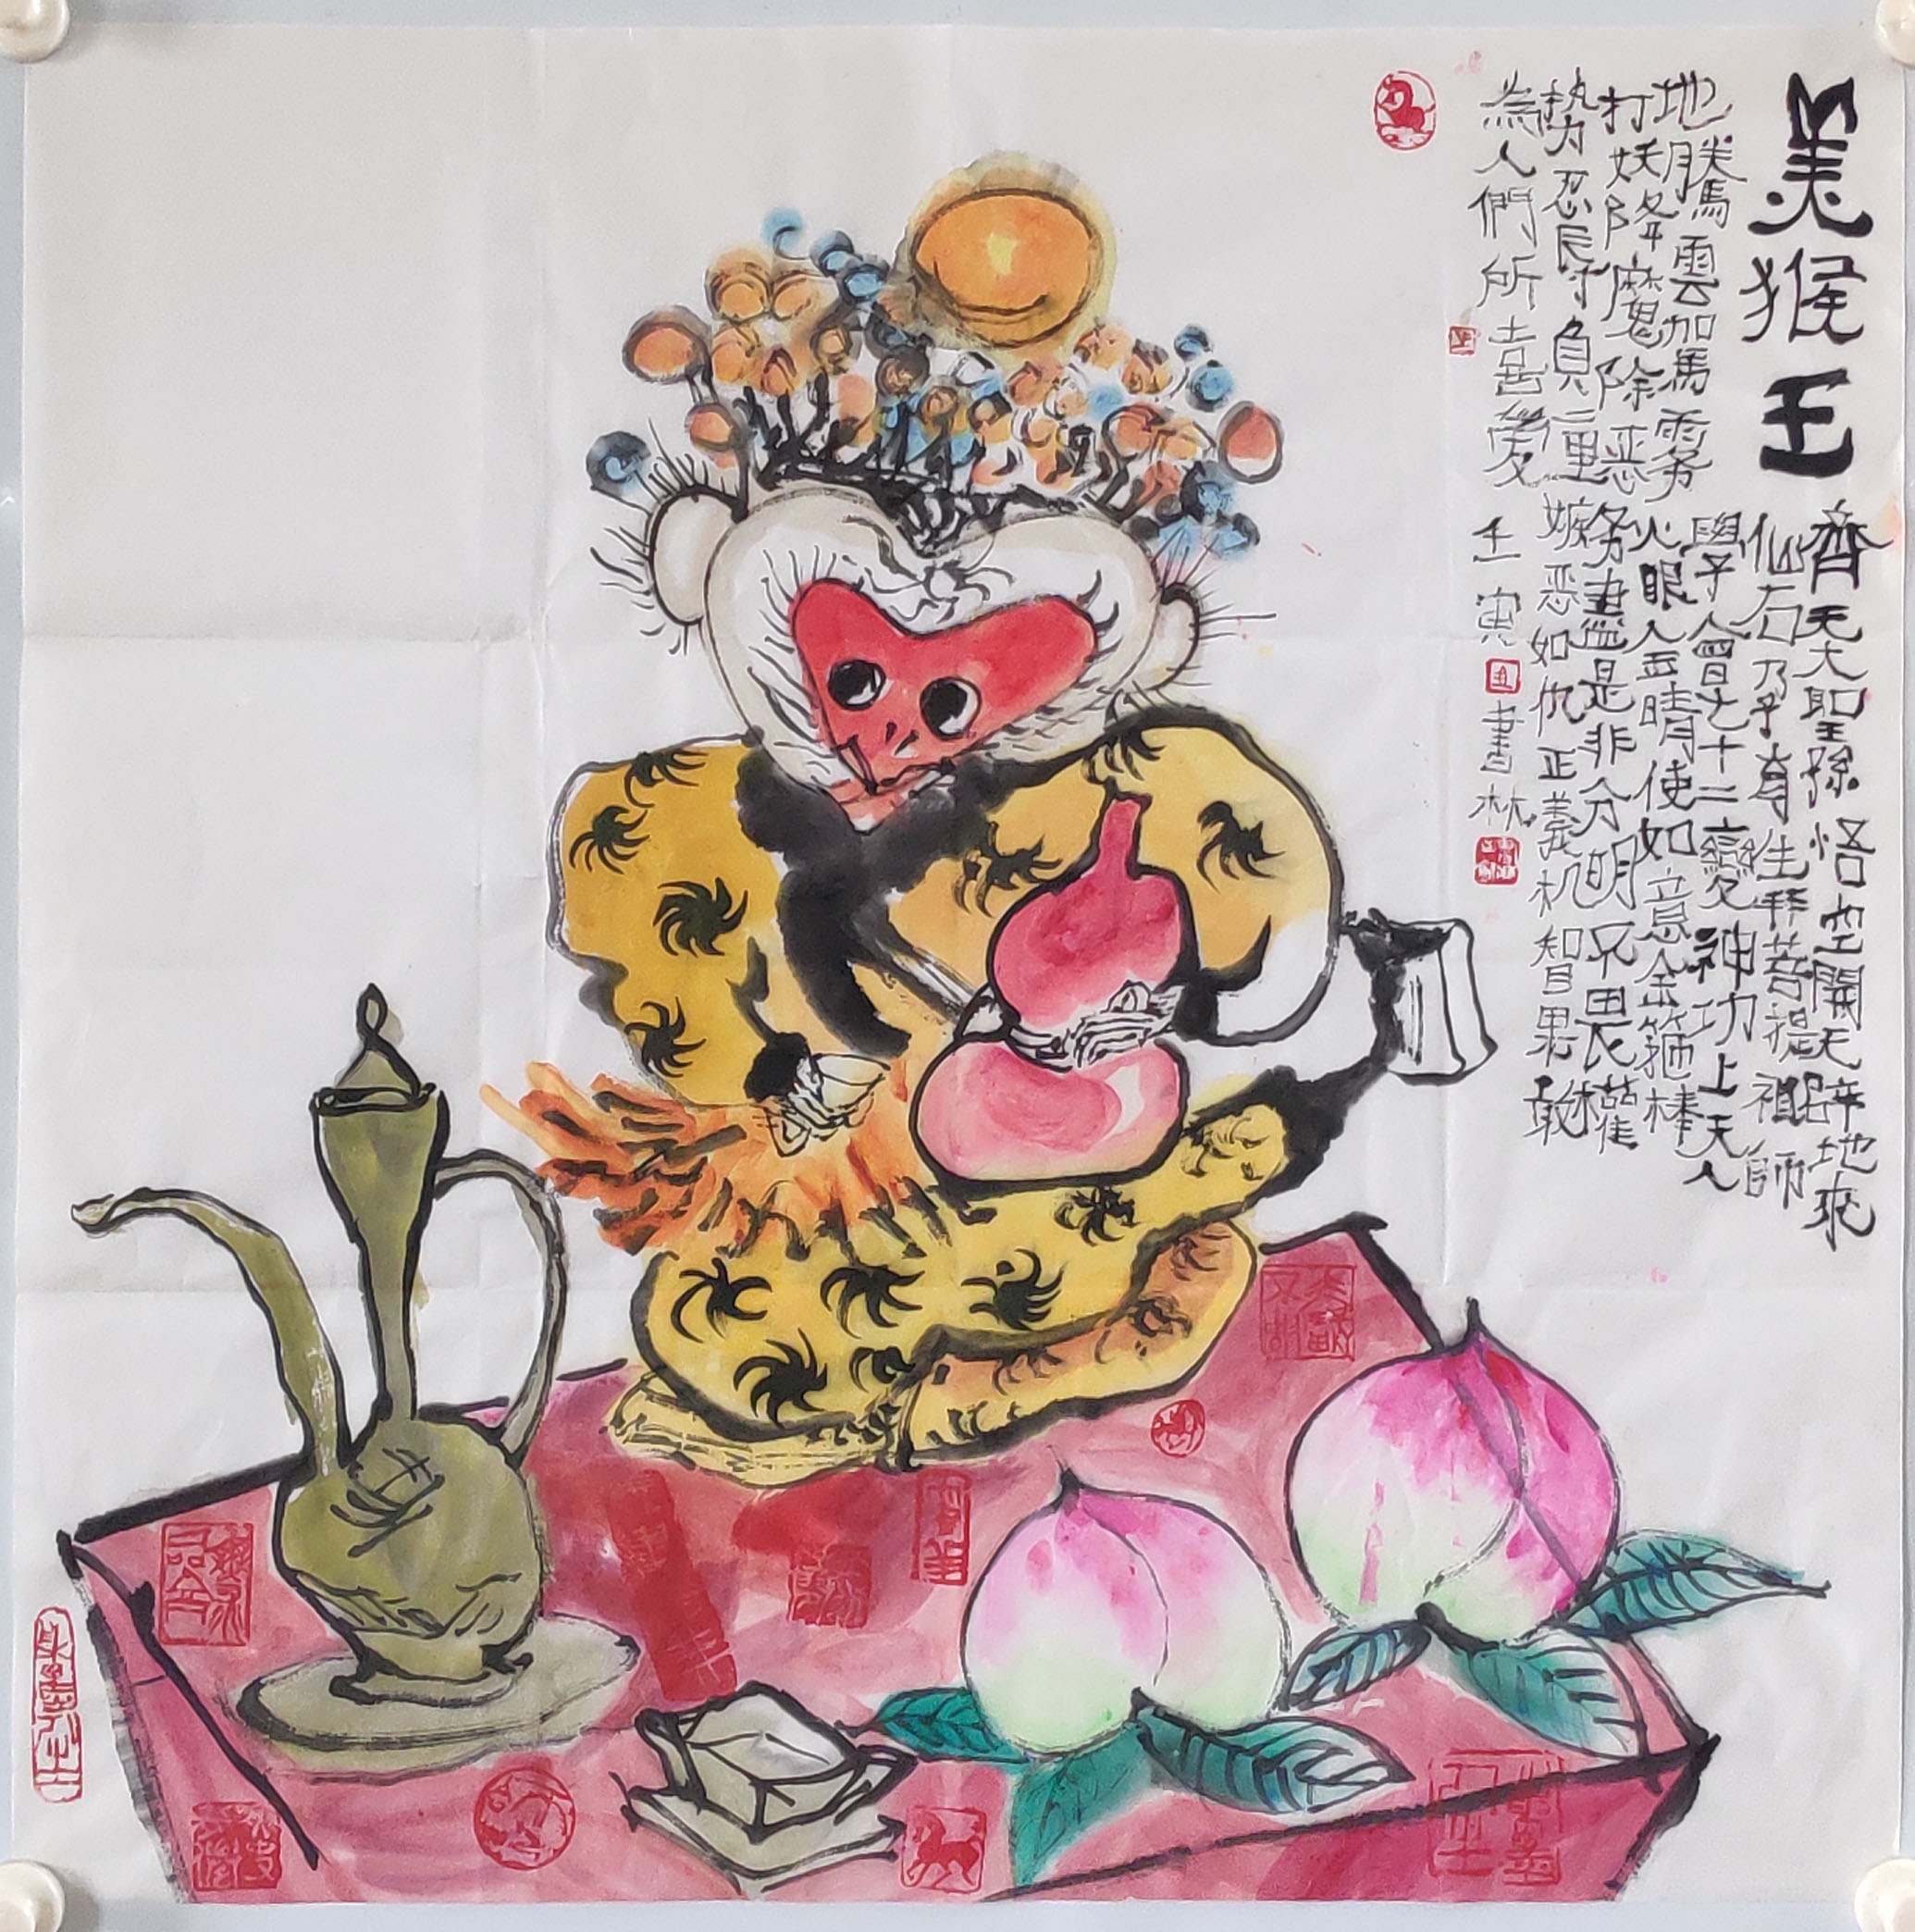 美猴王
齊天大聖孫悟空開天辟地來
仙石孕育生拜菩提祖師
學會七十二變神功上天入
地騰雲駕雾火眼金睛使如意金箍棒
打妖降魔除恶务盡是非分明不畏權
势忍辱負重嫉恶如仇正義机智果敢
為人們所喜愛 壬寅 書林